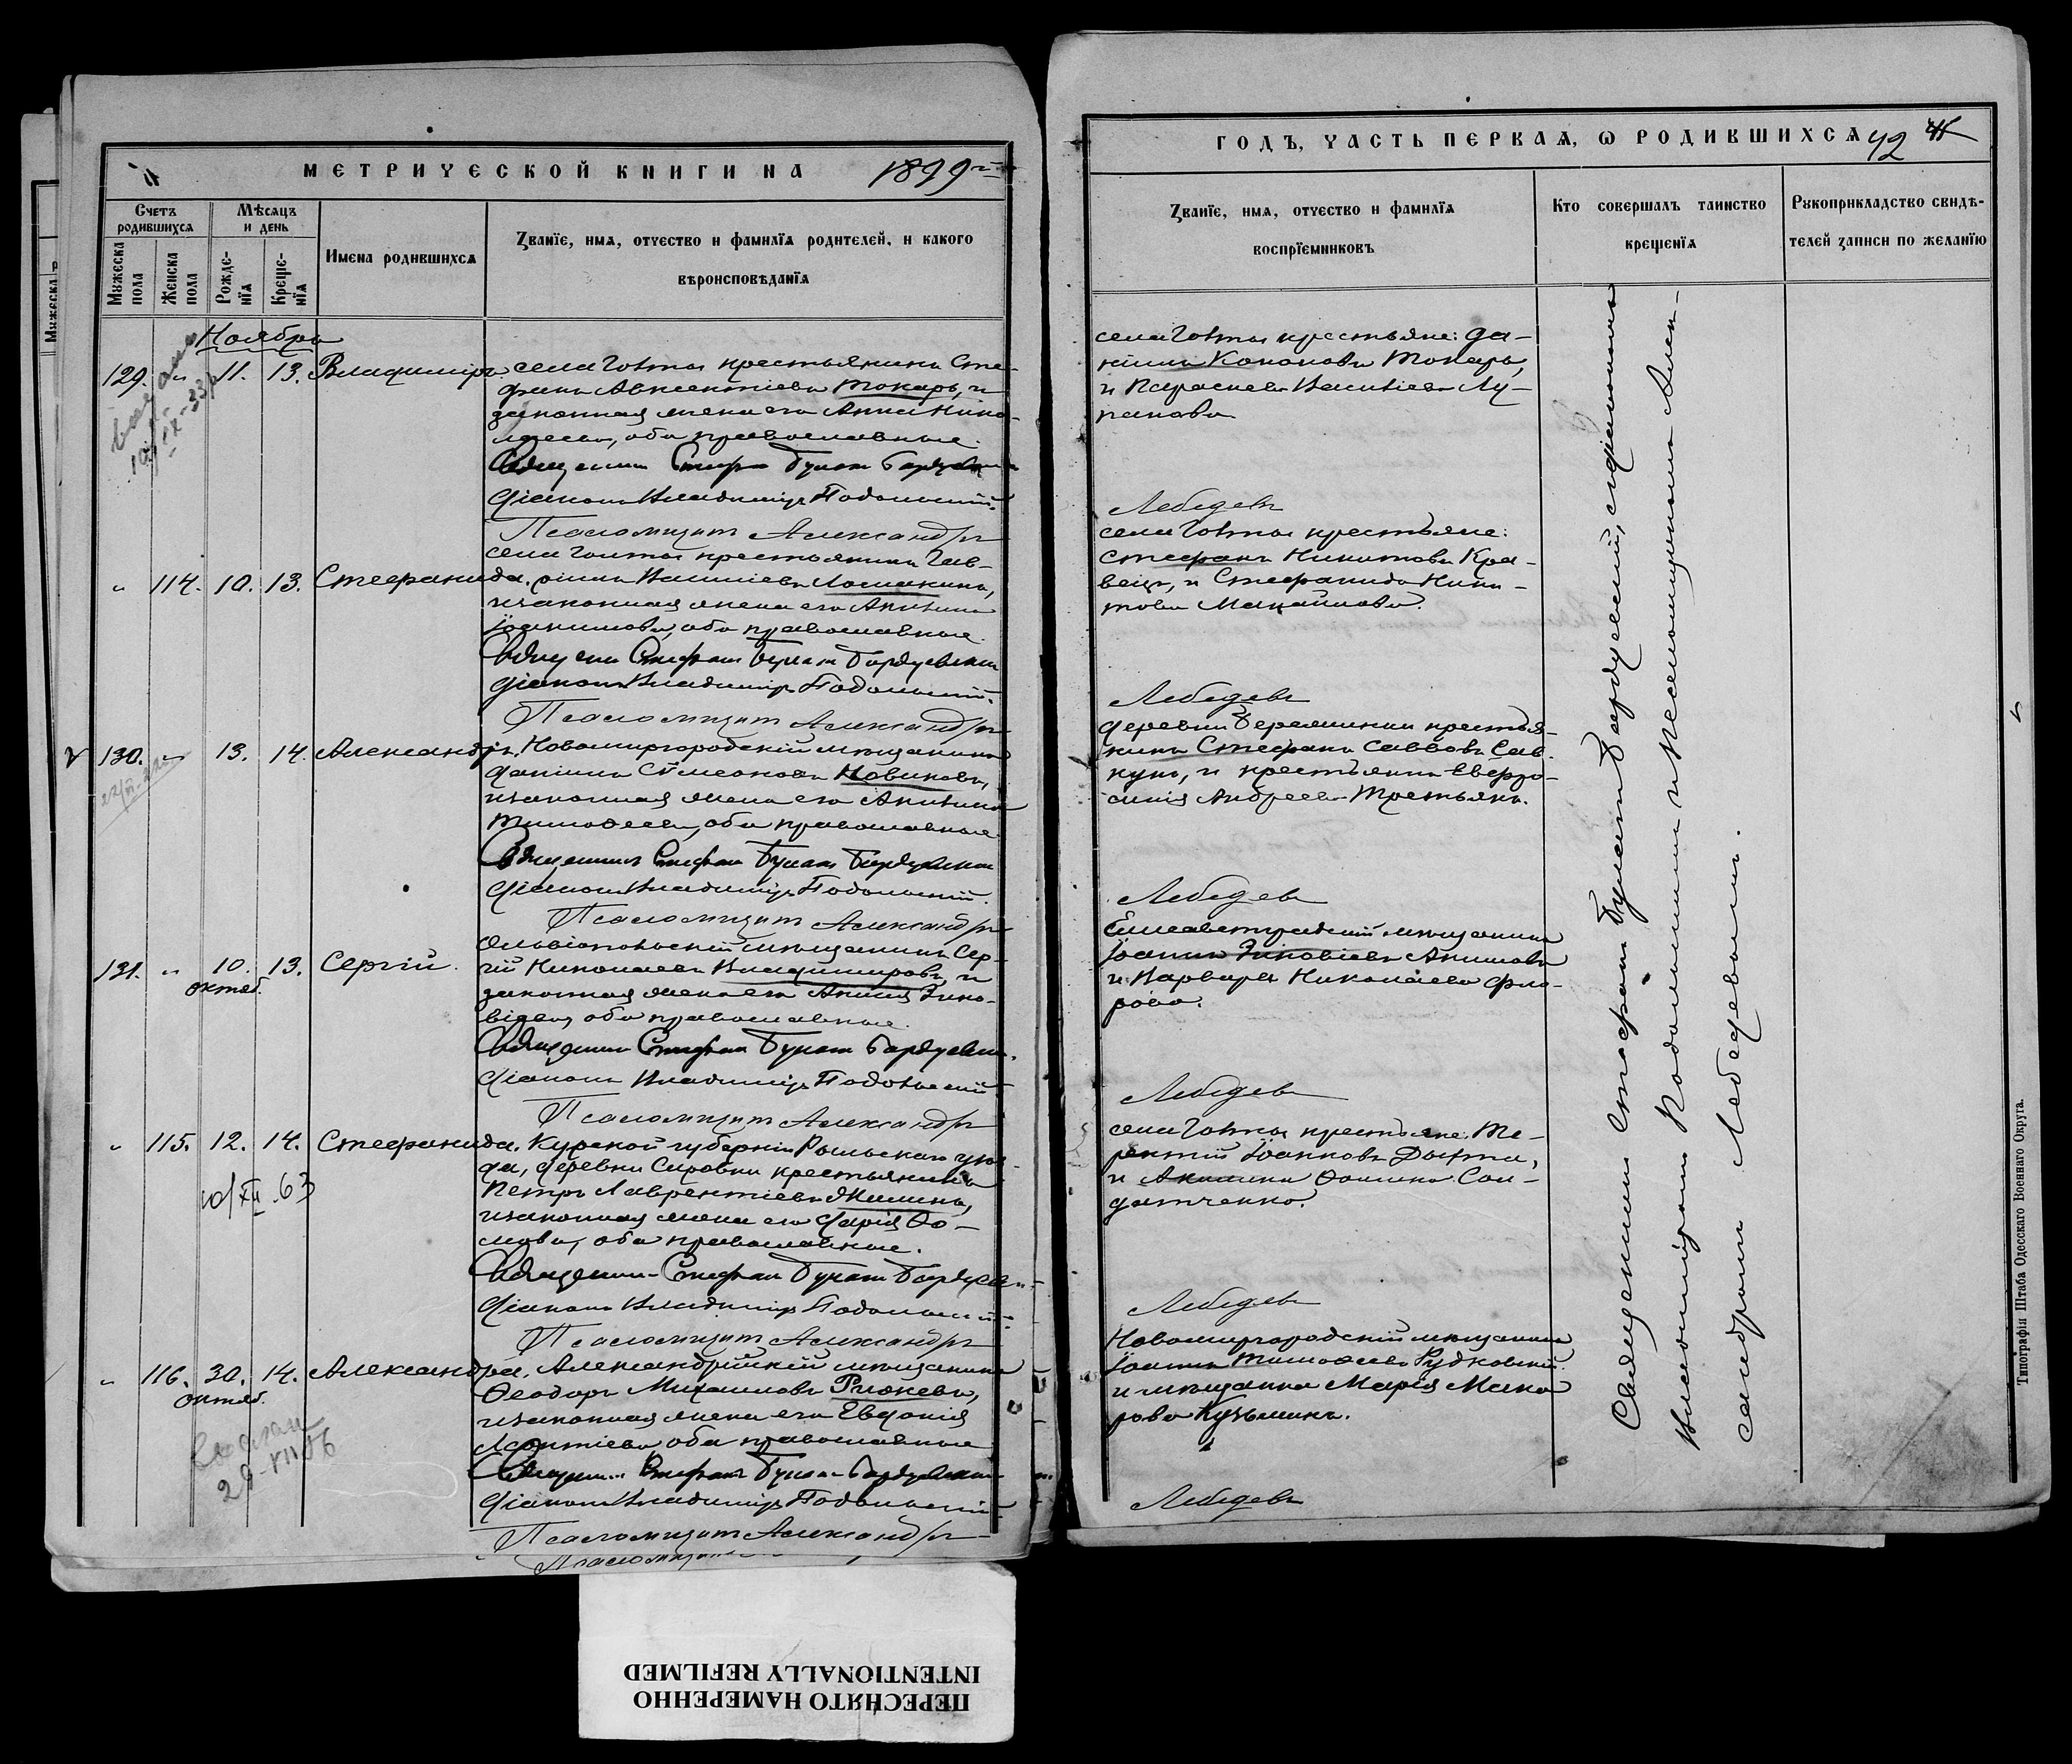 МЕТРИЧЕСКОЙ КНИГИ НА 1899
Счетъ родившихся
Мѣсяцъ и день
Мужеска пола
Женска пола
Рожденїя
Крещенїя
Имена родившихся
Званїе, имя, отчество и фамилїя родителей, и какого
вѣроисповѣданїя
Ноябрь
129. " 11. 13. Владиміръ
села Голты крестьянинъ Сте-
фанъ Авксентіевъ Токарь, и
законная жена его Анна Нико-
лаева, оба православные.
Священникъ Стефанъ Булатъ Бардуевскій
Діаконъ Владиміръ Подольскій.
Псаломщикъ Александръ
" 114. 10. 13. Стефанида.
села Голты крестьянинъ Гав-
ріилъ Василіевъ Ломакинъ,
и законная жена его Акилина
Іоакимова, оба православные.
Священникъ Стефанъ Булатъ Бардуевскій
Діаконъ Владиміръ Подольскій.
Псаломщикъ Александръ
130. " 13. 14. Александръ.
Новомиргородскій мѣщанинъ
Даніилъ Сѵмеоновъ Новиковъ,
и законная жена его Акилина
Тимофеева, оба православные.
Священникъ Стефанъ Булатъ Бардуевскій
Діаконъ Владиміръ Подольскій.
Псаломщикъ Александръ
131. " 10. октяб. 13. Сергій.
Ольвіопольскій мѣщанинъ Сер-
гій Николаевъ Владиміровъ, и
законная жена его Анисія Зино-
віева, оба православные.
Священникъ Стефанъ Булатъ Бардуевскій.
Діаконъ Владиміръ Подольскій.
Псаломщикъ Александръ
" 115. 12. 14. Стефанида.
10/XII.63
Курской губерніи Рыльскаго уѣз-
да, деревни Суровки крестьянинъ
Петръ Лаврентіевъ Жилинъ,
и законная жена его Дарія Ѳо-
мова, оба православные.
Священникъ Стефанъ Булатъ Бардуевскій
Діаконъ Владиміръ Подольскій.
Псаломщикъ Александръ
" 116. 30. октяб. 14. Александра.
Александрійскій мѣщанинъ
Ѳеодоръ Михаиловъ Рыжевъ,
и законная жена его Евдокія
Леонтіева, оба православные
Священникъ Стефанъ Булатъ Бардуевскій
Діаконъ Владиміръ Подольскій.
Псаломщикъ Александръ
Псаломщикъ
ГОДЪ, ЧАСТЬ ПЕРВАЯ, Ѡ РОДИВШИХСЯ 42
Званїе, имя, отчество и фамилїя
воспрїемниковъ
Кто совершалъ таинство
крещенїя
Рукоприкладство свидѣ-
телей записи по желанїю
села Голты крестьяне: Да-
ніилъ Кононовъ Токарь,
и Параскева Василіева Лу-
панова
Лебедевъ
села Голты крестьяне:
Стефанъ Никитовъ Кра-
вецъ, и Стефанида Ники-
това Манайлова.
Лебедевъ
деревни Веремѣики крестья-
нинъ Стефанъ Саввовъ Сав-
кунъ, и крестьянка Евфро-
синія Андреева Третьякъ.
Лебедевъ
Елисаветградскій мѣщанинъ
Іоаннъ Зиновіевъ Акимовъ
и Варвара Николаева Фло-
рова.
Лебедевъ
села Голты крестьяне: Те-
рентій Іоанновъ Дыхта,
и Акилина Ѳомина Сол-
датченко.
Лебедевъ
Новомиргородскій мѣщанинъ
Іоаннъ Тимофеевъ Рудковскій
и мѣщанка Марія Мака-
рова Кузьминъ.
Лебедевъ
Священникъ Стефанъ Булатъ Бардуевскій, съ діакономъ
Владиміромъ Подольскимъ и Псаломщикомъ Алек-
сандромъ Лебедевымъ.
Типографія Штаба Одесскаго Военнаго Округа.
ПЕРЕСНЯТО НАМЕРЕННО
INTENTIONALLY REFILMED